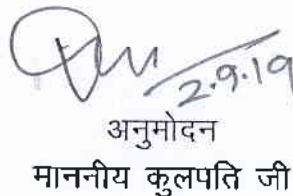 2.9.19
अनुमोदन
माननीय कुलपति जी